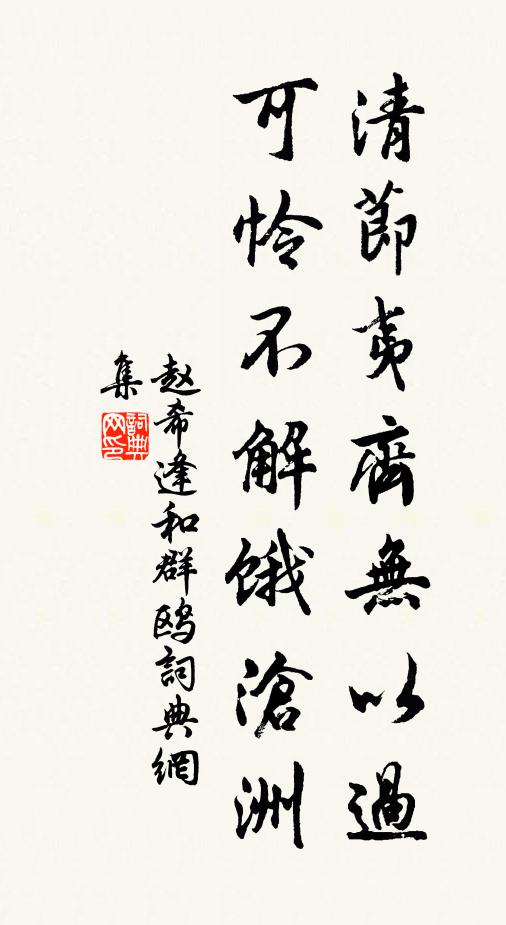 清節夷齊無以過
可怜不解餓滄洲
赵希逢和群鸥詞典網
集
詞典
网印